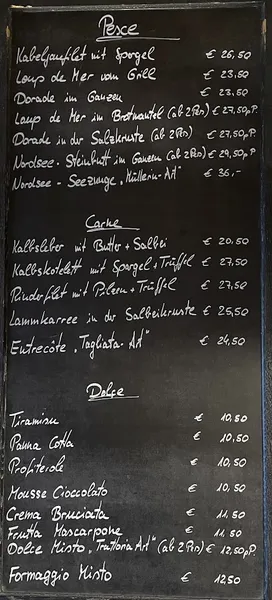 Pesce
Kabeljaufilet mit Spargel € 26,50
Loup de Mer vom Grill € 23,50
Dorade im Ganzen € 23,50
Loup de Mer im Brotmantel (ab 2 Pers) € 27,50 p.P.
Dorade in der Salzkruste (ab 2 Pers) € 27,50 p.P.
Nordsee-Steinbutt im Ganzen (ab 2 Pers) € 29,50 p.P.
Nordsee-Seezunge „Müllerin-Art" € 36,-
Carne
Kalbsleber mit Butter + Salbei € 20,50
Kalbskotelett mit Spargel + Trüffel € 27,50
Rinderfilet mit Pilzen + Trüffel € 27,50
Lammkarree in der Salbeikruste € 25,50
Entrecôte „Tagliata-Art" € 24,50
Dolce
Tiramisu € 10,50
Panna Cotta € 10,50
Profiterole € 10,50
Mousse Cioccolato € 10,50
Crema Bruciata € 11,50
Frutta Mascarpone € 11,50
Dolce Misto „Trattoria Art" (ab 2 Pers) € 12,50 p.P.
Formaggio Misto € 12,50